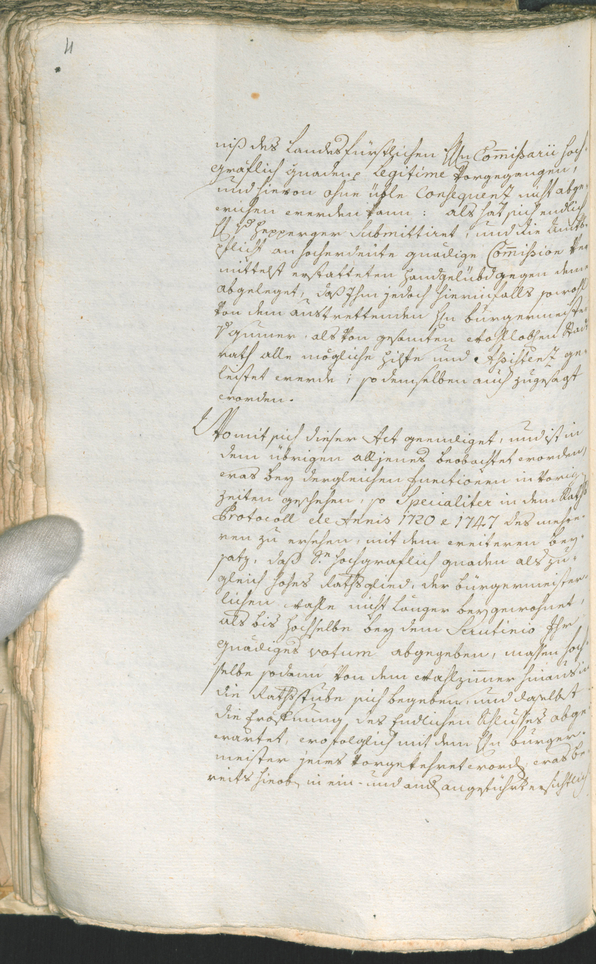 4
niß des Landesfürstlichen Hn Com̅ißarii hoch-
gräflich gnaden legitime vorgegangen,
und hieron ohne üble Consequenz nicht abge-
wichen werden kann: als hat sich endlich
H. Hepperger submittiret, und die Amts-
pflicht an hocherdeute gnädige Com̅ißion ver-
mittelst erstatteten Handgelübd gegen deme
abgeleget, daß Ihm jedoch hierinfalls sowohl
von dem austrettenden Hn burgermeister
v Gumer, als von gesamten wohlloblen Stadt-
rath alle mögliche hilfe und Aßistenz ge-
leistet werde; so demselben auch zugesagt
worden.
Womit sich dieser Act geendiget, und ist in
dem übrigen alljenes beobachtet worden,
was bey dergleichen functionen in vorig-
zeiten geschehen, so Specialiter in dem Raths
Protocoll de Annis 1720 e 1747 des mehre-
ren zu ersehen, mit dem weiteren bey-
satz, daß Se hochgräflich gnaden als zu-
gleich hohes Rathsglied, der bürgermeister-
lichen wahle nicht länger beygewohnet,
als bis hochselbe bey dem Scrutinio Ihr
gnädiges votum abgegeben, maßen hoch-
selbe sodann von dem wahlzim̅er hinaus in
die Rathsstube sich begeben, und daselbst
die Eröffnung des Endlichen Schlußes abge-
wartet, erofolglich mit dem Hn burger-
meister jenes vorgekehret word, was be-
reits hieob in ein- und and angeführt ersichtlich